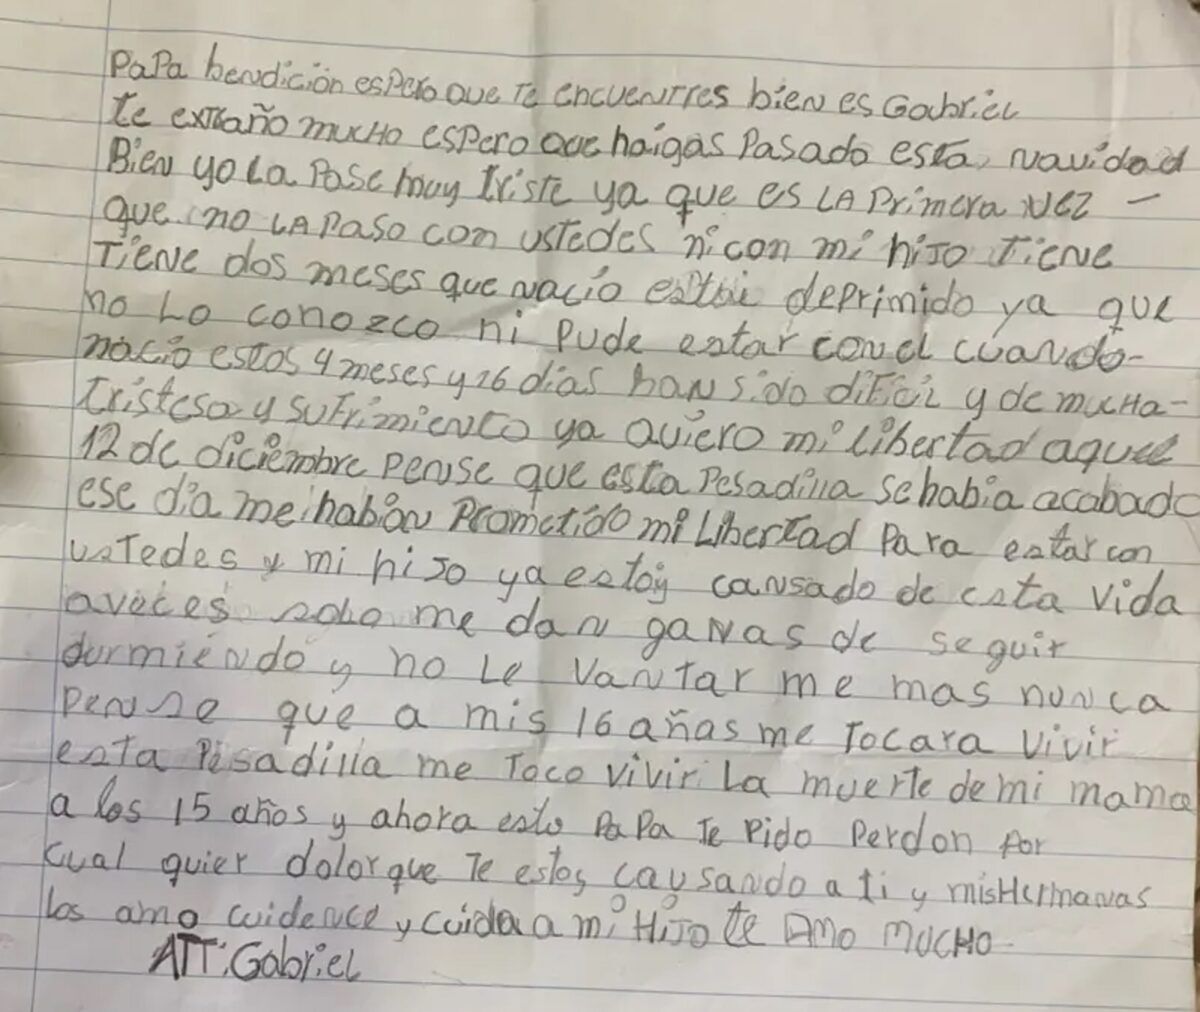 PaPa bendición esPero que Te encuentres bien es Gabriel
te extraño mucHo esPero que haigas Pasado esta navidad
Bien yo La Pase muy triste ya que es LA Primera vez -
que no LA Paso con ustedes ni con mi hiJo Tiene
Tiene dos meses que nacio estoi deprimido ya que
no Lo conozco ni Pude estar con el cuando-
nacio estos 4 meses y 26 dias han sido dificil y de mucHa-
tristesa y sufrimiento ya quiero mi Libertad aquel
12 de diciembre pense que esta Pesadilla se habia acabado
ese dia me habian Prometido mi Libertad Para estar con
ustedes y mi hiJo ya estoy cansado de esta vida
aveces solo me dan ganas de seguir
durmiendo y no Le vantar me mas nunca
Pense que a mis 16 añas me Tocara vivir
esta Pesadilla me Toco vivir La muerte de mi mama
a los 15 años y ahora esto PaPa Te Pido Perdon Por
cual quier dolor que Te estoy causando a ti y mis Hermanas
los amo cuidence y cuida a mi HiJo te Amo MUCHO
ATT: Gabriel